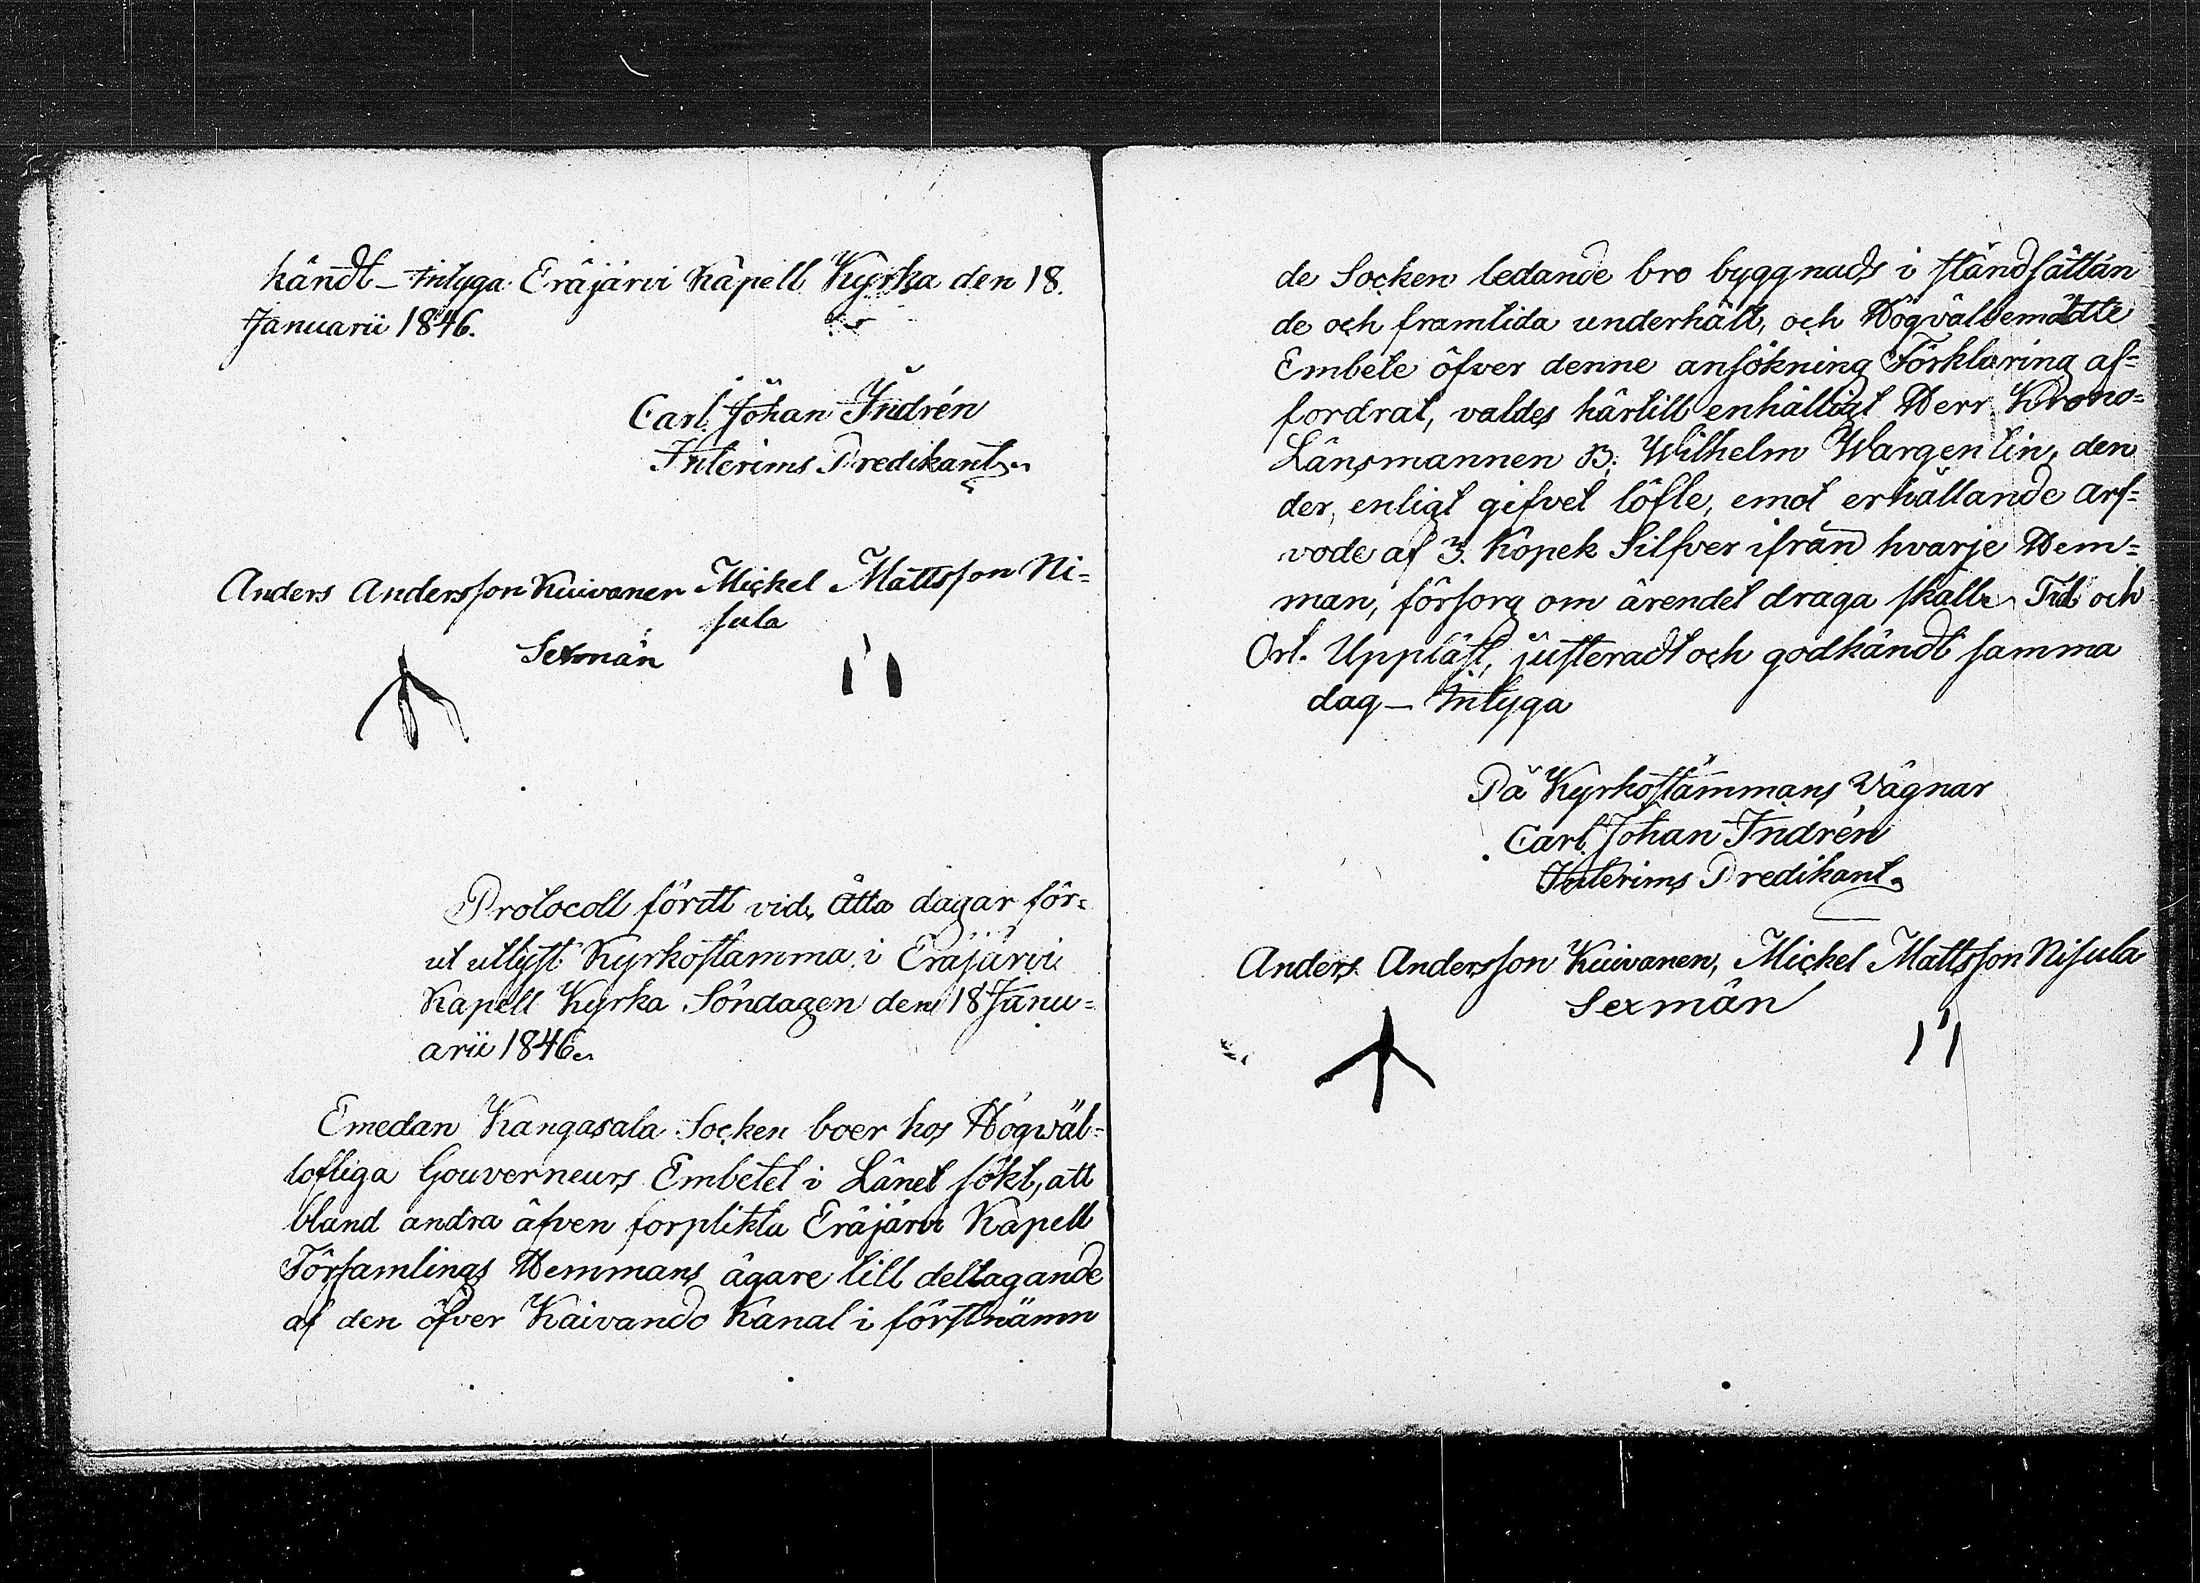 kändt – intyga Eräjärvi Kapell Kyrka den 18.
Januarii 1846.
Carl Johan Indrén
Interims Predikant.
Anders Andersson Kuivanen Mickel Mattsson Ni=
sula
Sexmän
Protocoll fördt vid, åtta dagar för=
ut utlyst Kyrkostämma i Eräjärvi
Kapell Kyrka Söndagen den 18 Janu=
arii 1846.
Emedan Kangasala Socken boer hos Högwäl=
lofliga Gouverneurs Embetet i Länet sökt, att
bland andra äfven förplikta Eräjärvi Kapell
Församlings Hemmans ägare till deltagande
af den öfver Kaivando Kanal i förstnämn
de Socken ledande bro byggnads i ståndsättan
de och framtida underhåll, och Högvälbemälte
Embete öfver denne ansökning Förklaring af=
fordrat, valdes härtill enhälligt Herr Krono=
Länsmannen B. Wilhelm Wargentin, den
der, enligt gifvet löfte, emot erhållande arf=
vode af 3. Kopek Silfver ifrån hvarje Hem=
man, försorg om ärendet draga skall. Tid och
Ort. Uppläst, justeradt och godkändt samma
dag – Intyga
På Kyrkostämmans Vägnar
Carl Johan Indrén
Interims Predikant.
Anders Andersson Kuivanen, Mickel Mattsson Nisula
Sexmän